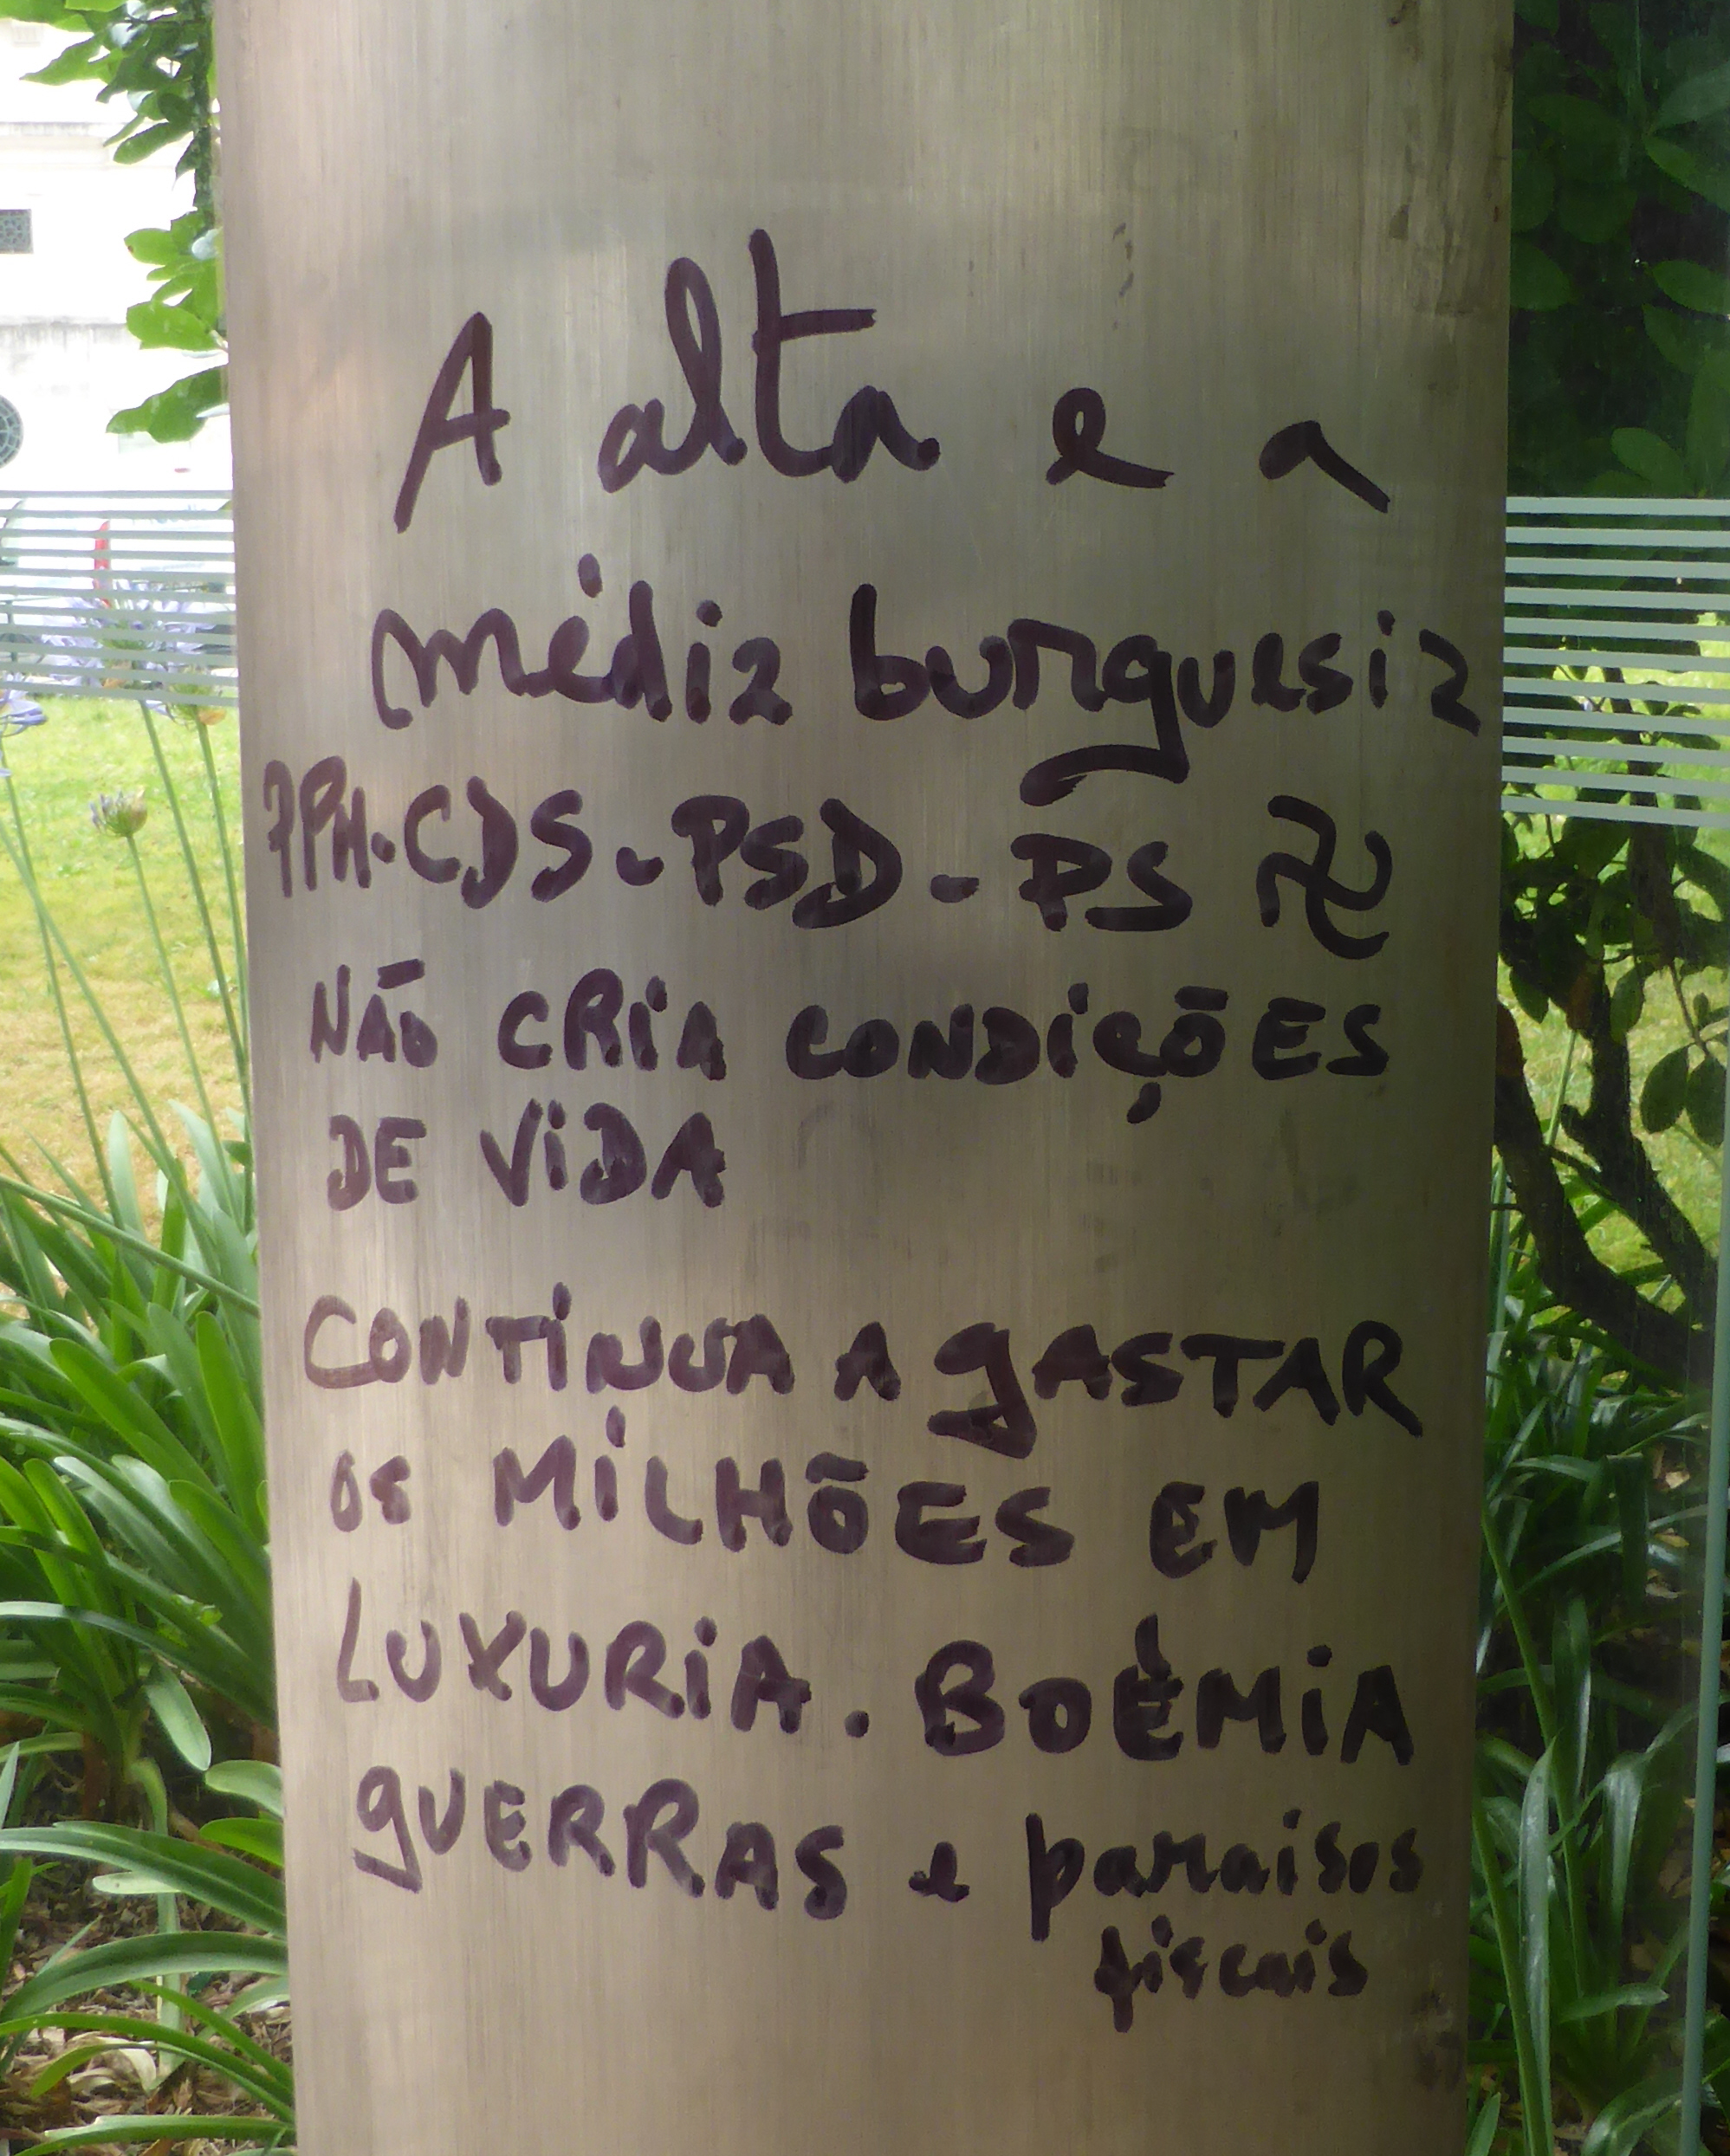 A alta e a
média burguesia
PPM.CDS.PSD-PS
NÃO CRIA CONDIÇÕES
DE VIDA
CONTINUA A GASTAR
OS MILHÕES EM
LUXURIA. BOÉMIA
GUERRAS e paraisos
fiscais